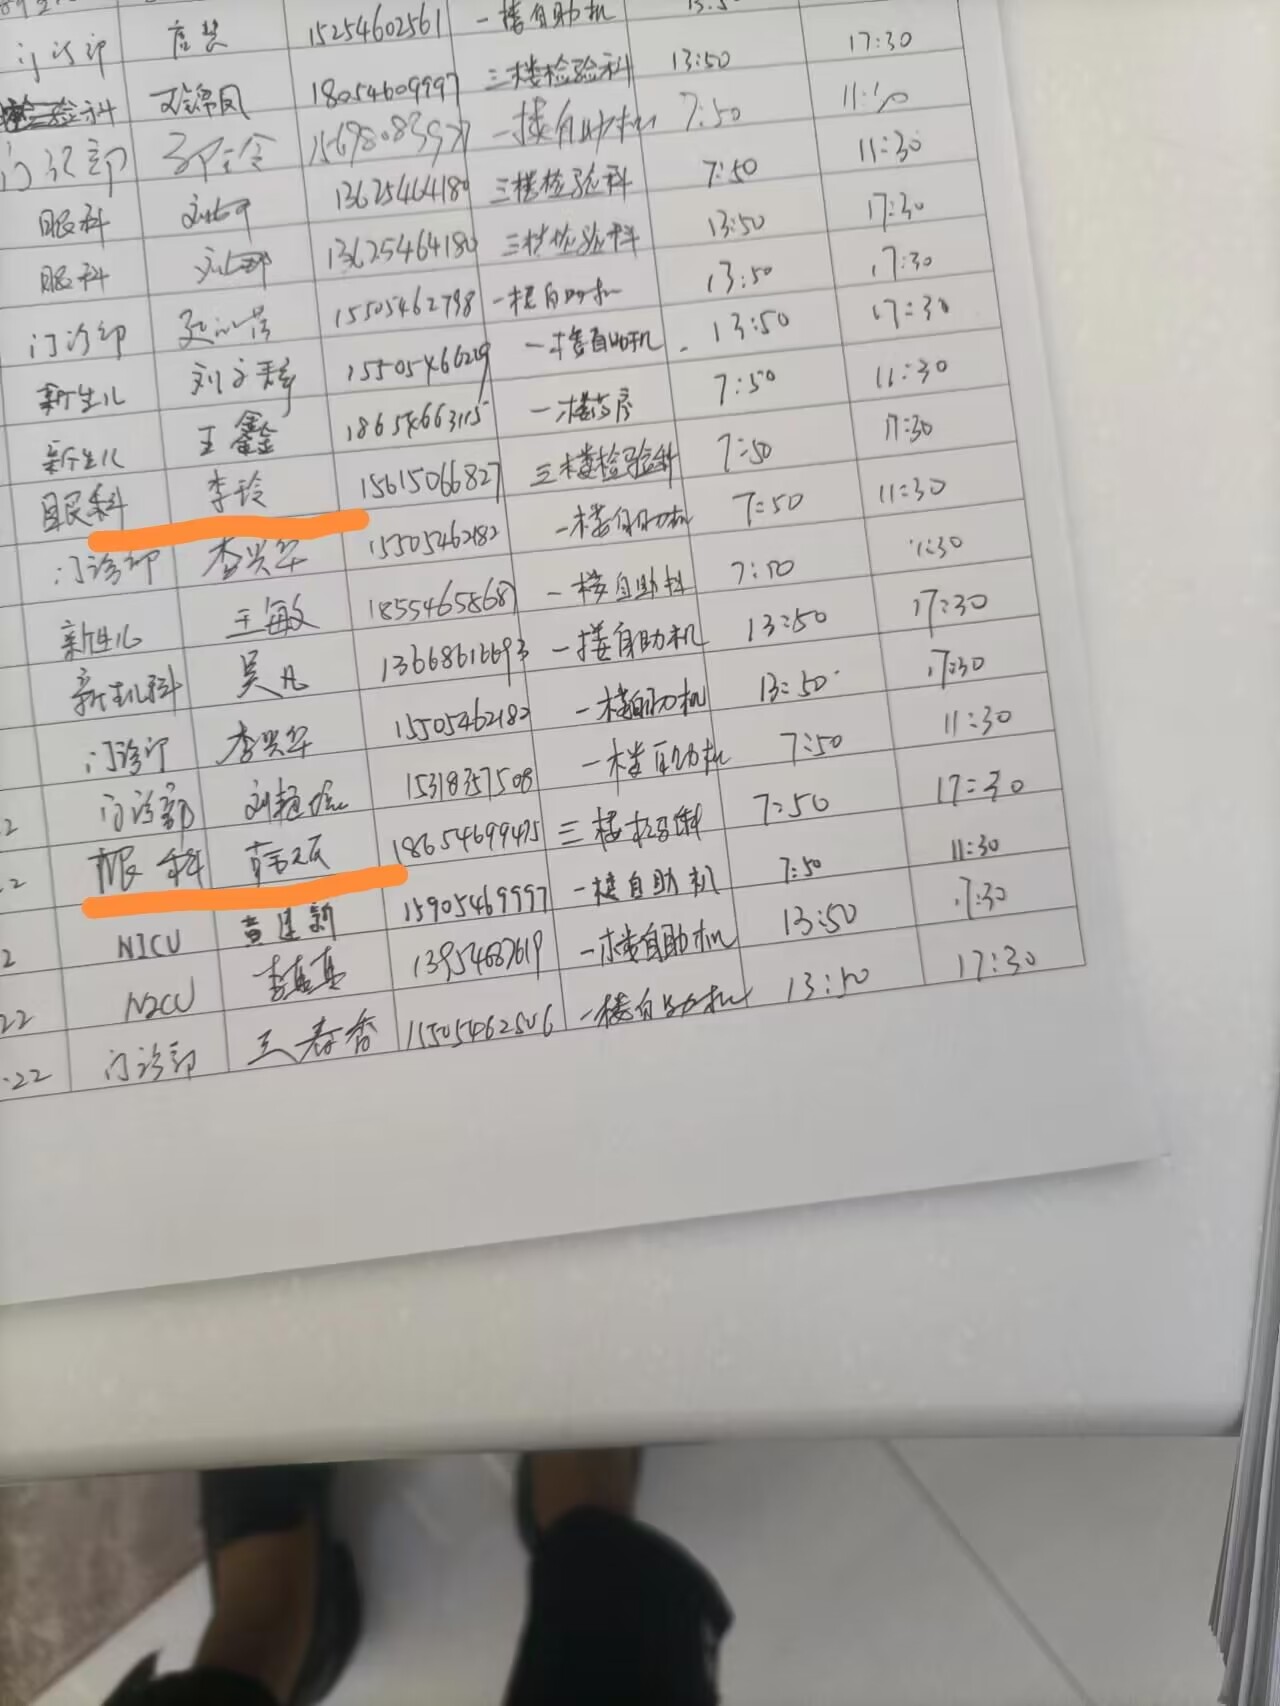 门诊部 15254602561 一楼自助机
检验科 18054609997 三楼检验科 13:50 17:30
门诊部 15698083977 一楼自助机 7:50
眼科 13625464180 三楼检验科 7:50 11:30
眼科 13625464180 三楼检验科 13:50 17:30
门诊部 15505462798 一楼自助机 13:50 17:30
新生儿 刘 一楼自助机 13:50 17:30
新生儿 王鑫 一楼药房 7:50 11:30
眼科 李玲 15615066827 三楼检验科 7:50 17:30
门诊部 李兴华 15505462182 一楼自助机 7:50 11:30
新生儿 王敏 18554658687 一楼自助 7:50 11:30
新生儿科 吴凡 13668616693 一楼自助机 13:50 17:30
门诊部 李兴华 15505462182 一楼自助机 13:50 17:30
门诊部 刘 15318357508 一楼自助机 7:50 11:30
眼科 18654699475 三楼 7:50 17:30
NICU 黄建新 15905469997 一楼自助机 7:50 11:30
NICU 13954687619 一楼自助机 13:50 17:30
22 门诊部 王春香 15505462506 一楼自助机 13:50 17:30